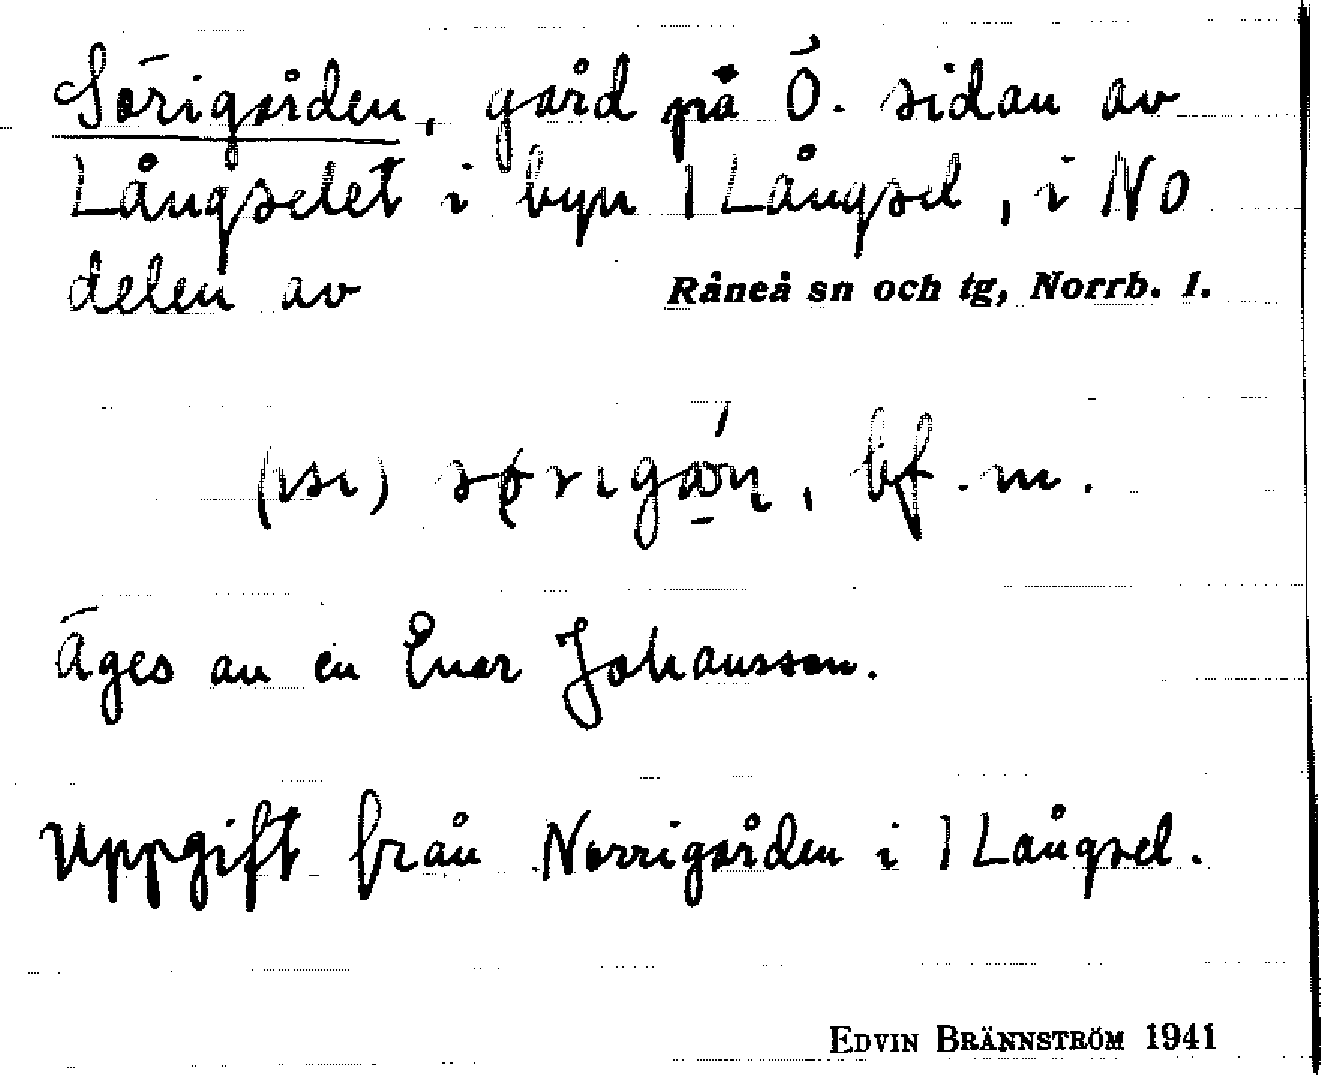 Sörigården, gård på Ö. sidan av
Långselet i byn 1 Långsel, i NO
delen av Råneå sn och tg, Norrb. l.
bf. m.
Äges av en Enar Johansson.
Uppgift från Norrigården i 1 Långsel.
EDVIN BRÄNNSTRÖM 1941